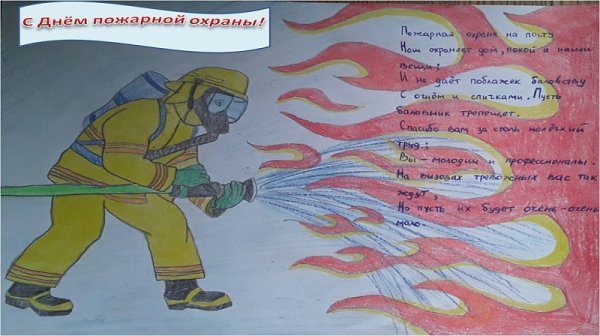 С Днём пожарной охраны!
Пожарная охрана на посту
Наш охраняет дом, покой и наши
вещи;
И не даёт поблажек баловству
С огнём и спичками. Пусть
баловник трепещет.
Спасибо вам за столь нелёгкий
труд;
Вы – молодцы и профессионалы.
На вызовах тревожных вас так
ждут,
Но пусть их будет очень-очень
мало.